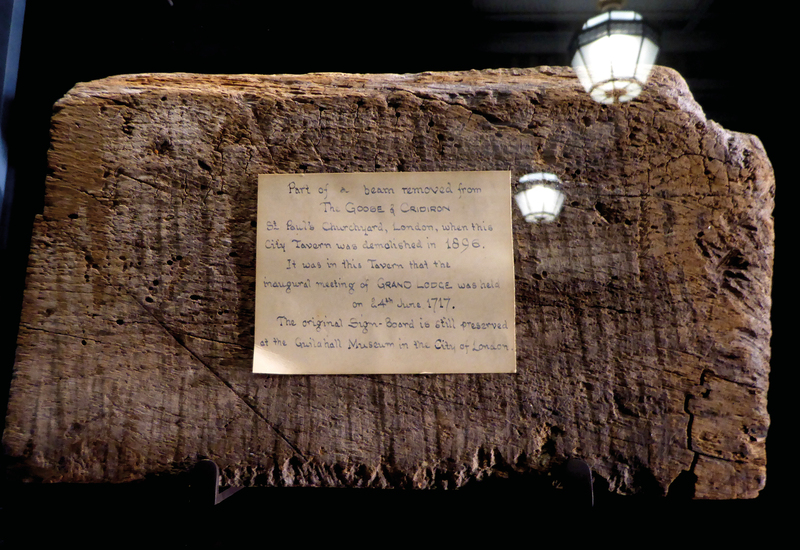 Part of a beam removed from
The GOOSE & GRIDIRON
St Paul's Churchyard, London, when this
City Tavern was demolished in 1896.
It was in this Tavern that the
inaugural meeting of GRAND LODGE was held
on 24th June 1717.
The original Sign-Board is still preserved
at the Guildhall Museum in the City of London